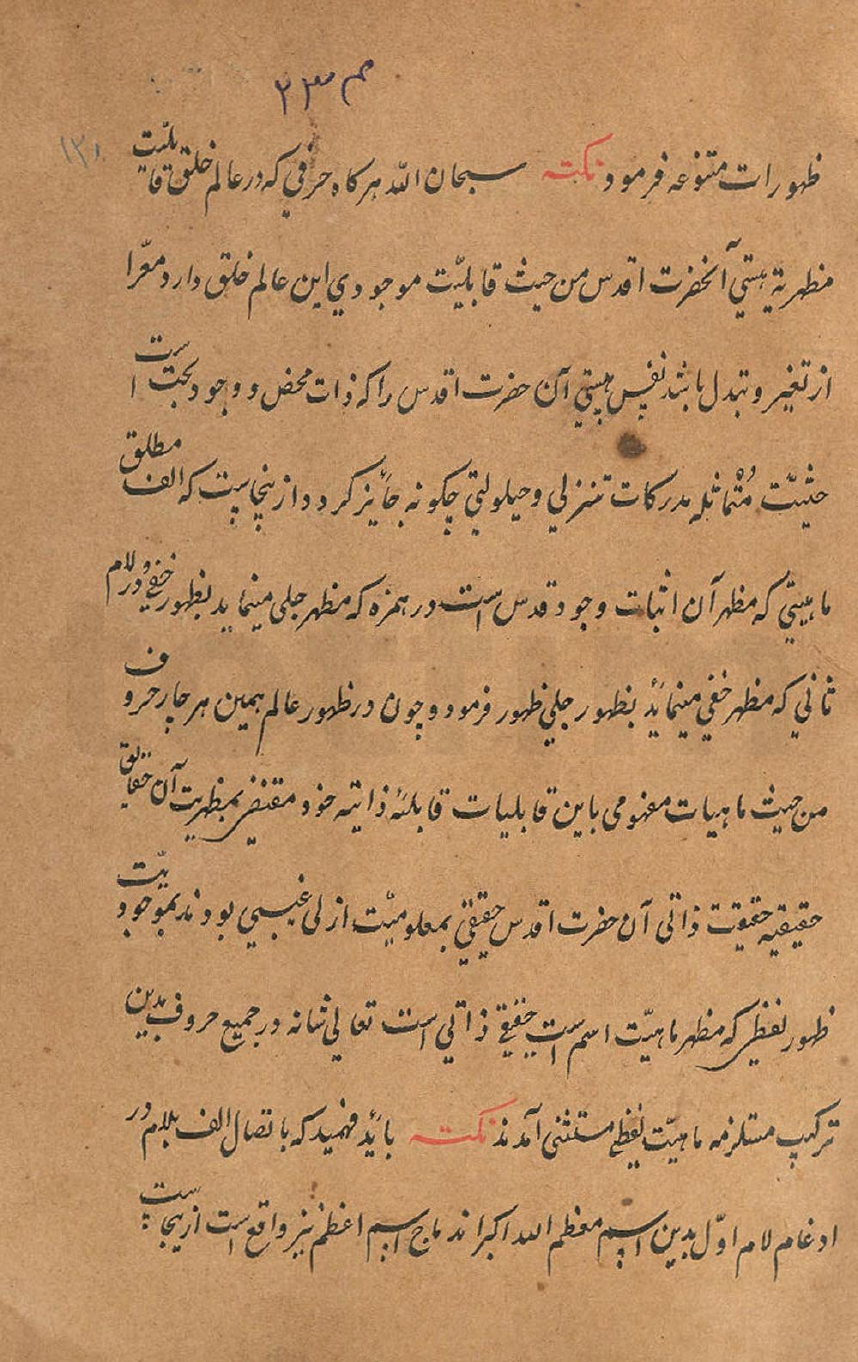 ۲۳۰
۱۳۱
ظهورات متنوعه فرمود نکته سبحان الله هرکاه حرفی که در عالم خلق قابلیّت
مظهریة هستي آنحضرت اقدس من حیث قابلیّت موجودي این عالم خلق دارد معرّا
از تغیر و تبدل باشد نفس هستي آن حضرت اقدس را که ذات محض و وجود بحت است
حثیّت مُتماثله مدرکات تنزلي و حیلولتي چکونه جائز کردد ازینجاست که الف مطلق
ماهیتي که مظهر آن اثبات وجود قدس است در همزه که مظهر جلی مینماید بظهور خفي و در لام
ثاني که مظهر خفي مینمائد بظهور جلي ظهور فرمود و چون در ظهور عالم همین هر چار حروف
من حیث ماهیات مفهومی باین قابلیات قابلئه ذاتیه خود مقتضی بمظریت آن حقایق
حقیقیه حقیقت ذاتی آن حضرت اقدس حقیقي بمعلومیّت ازلی غیبي بودند بموجودیّت
ظهور لفظي که مظهر ماهیّت اسم است حقیقي ذاتي است تعالی شانه در جمیع حروف بدین
ترکیب مستلزمه ماهیّت لفظی مستثنی آمدند نکته بائد فهمید که باتصال الف بلام در
ادغام لام اوّل بدین اسم معظم الله اکبر اندماج اسم اعظم نیز واقع است ازینجاست